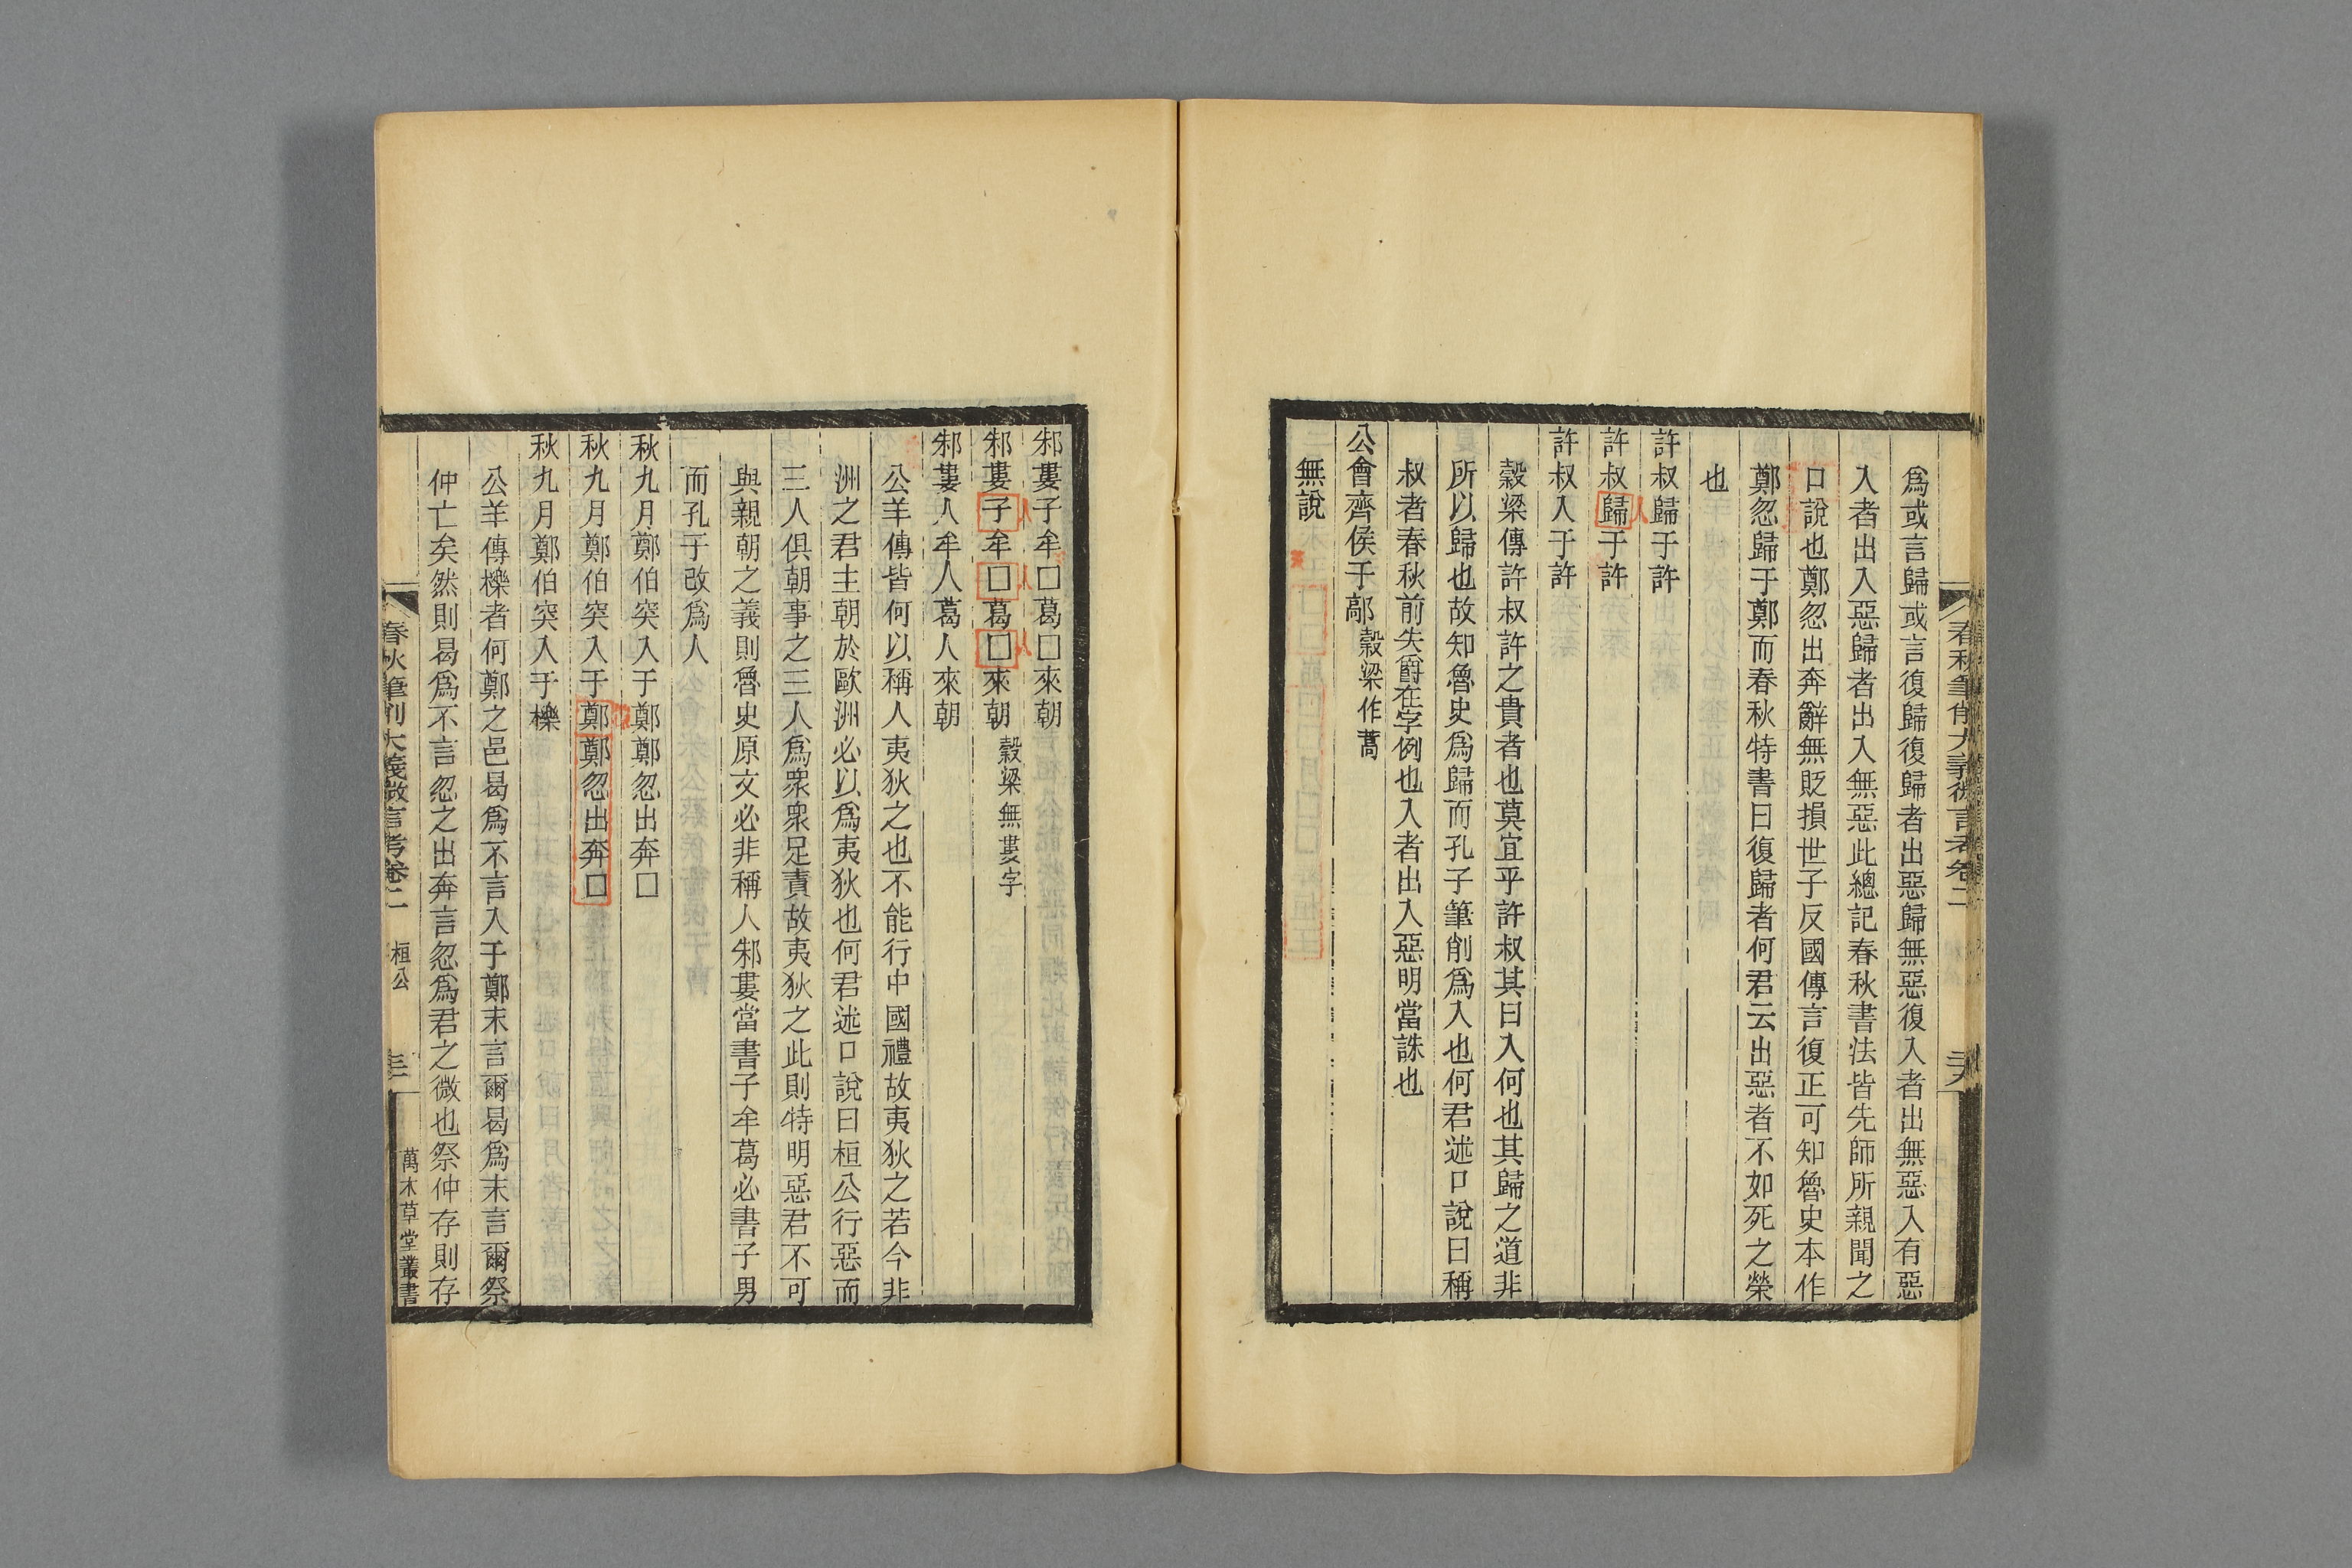 春秋筆削大義微言考卷二
爲或言歸或言復歸復歸者出惡歸無惡復入者出無惡入有惡
入者出入惡歸者出入無惡此總記春秋書法皆先師所親聞之
口說也鄭忽出奔辭無貶損世子反國傳言復正可知魯史本作
鄭忽歸于鄭而春秋特書曰復歸者何君云出惡者不如死之榮
也
許叔歸于許
許叔歸于許
入
許叔入于許
穀梁傳許叔許之貴者也莫宜乎許叔其曰入何也其歸之道非
所以歸也故知魯史爲歸而孔子筆削爲入也何君述口說曰稱
叔者春秋前失爵在字例也入者出入惡明當誅也
公會齊侯于鄗穀梁作蒿
無說
邾婁子牟□葛□來朝
邾婁子牟□葛□來朝穀梁無婁字
人人人
邾婁人牟人葛人來朝
公羊傳皆何以稱人夷狄之也不能行中國禮故夷狄之若今非
洲之君主朝於歐洲必以爲夷狄也何君述口說曰桓公行惡而
三人俱朝事之三人爲衆衆足責故夷狄之此則特明惡君不可
與親朝之義則魯史原文必非稱人邾婁當書子牟葛必書子男
而孔子改爲人
秋九月鄭伯突入于鄭鄭忽出奔□
秋九月鄭伯突入于鄭鄭忽出奔□
秋九月鄭伯突入于櫟
公羊傳櫟者何鄭之邑曷爲不言入于鄭末言爾曷爲末言爾祭
仲亡矣然則曷爲不言忽之出奔言忽爲君之微也祭仲存則存
春秋筆削大義微言考卷二 桓公
萬木草堂叢書